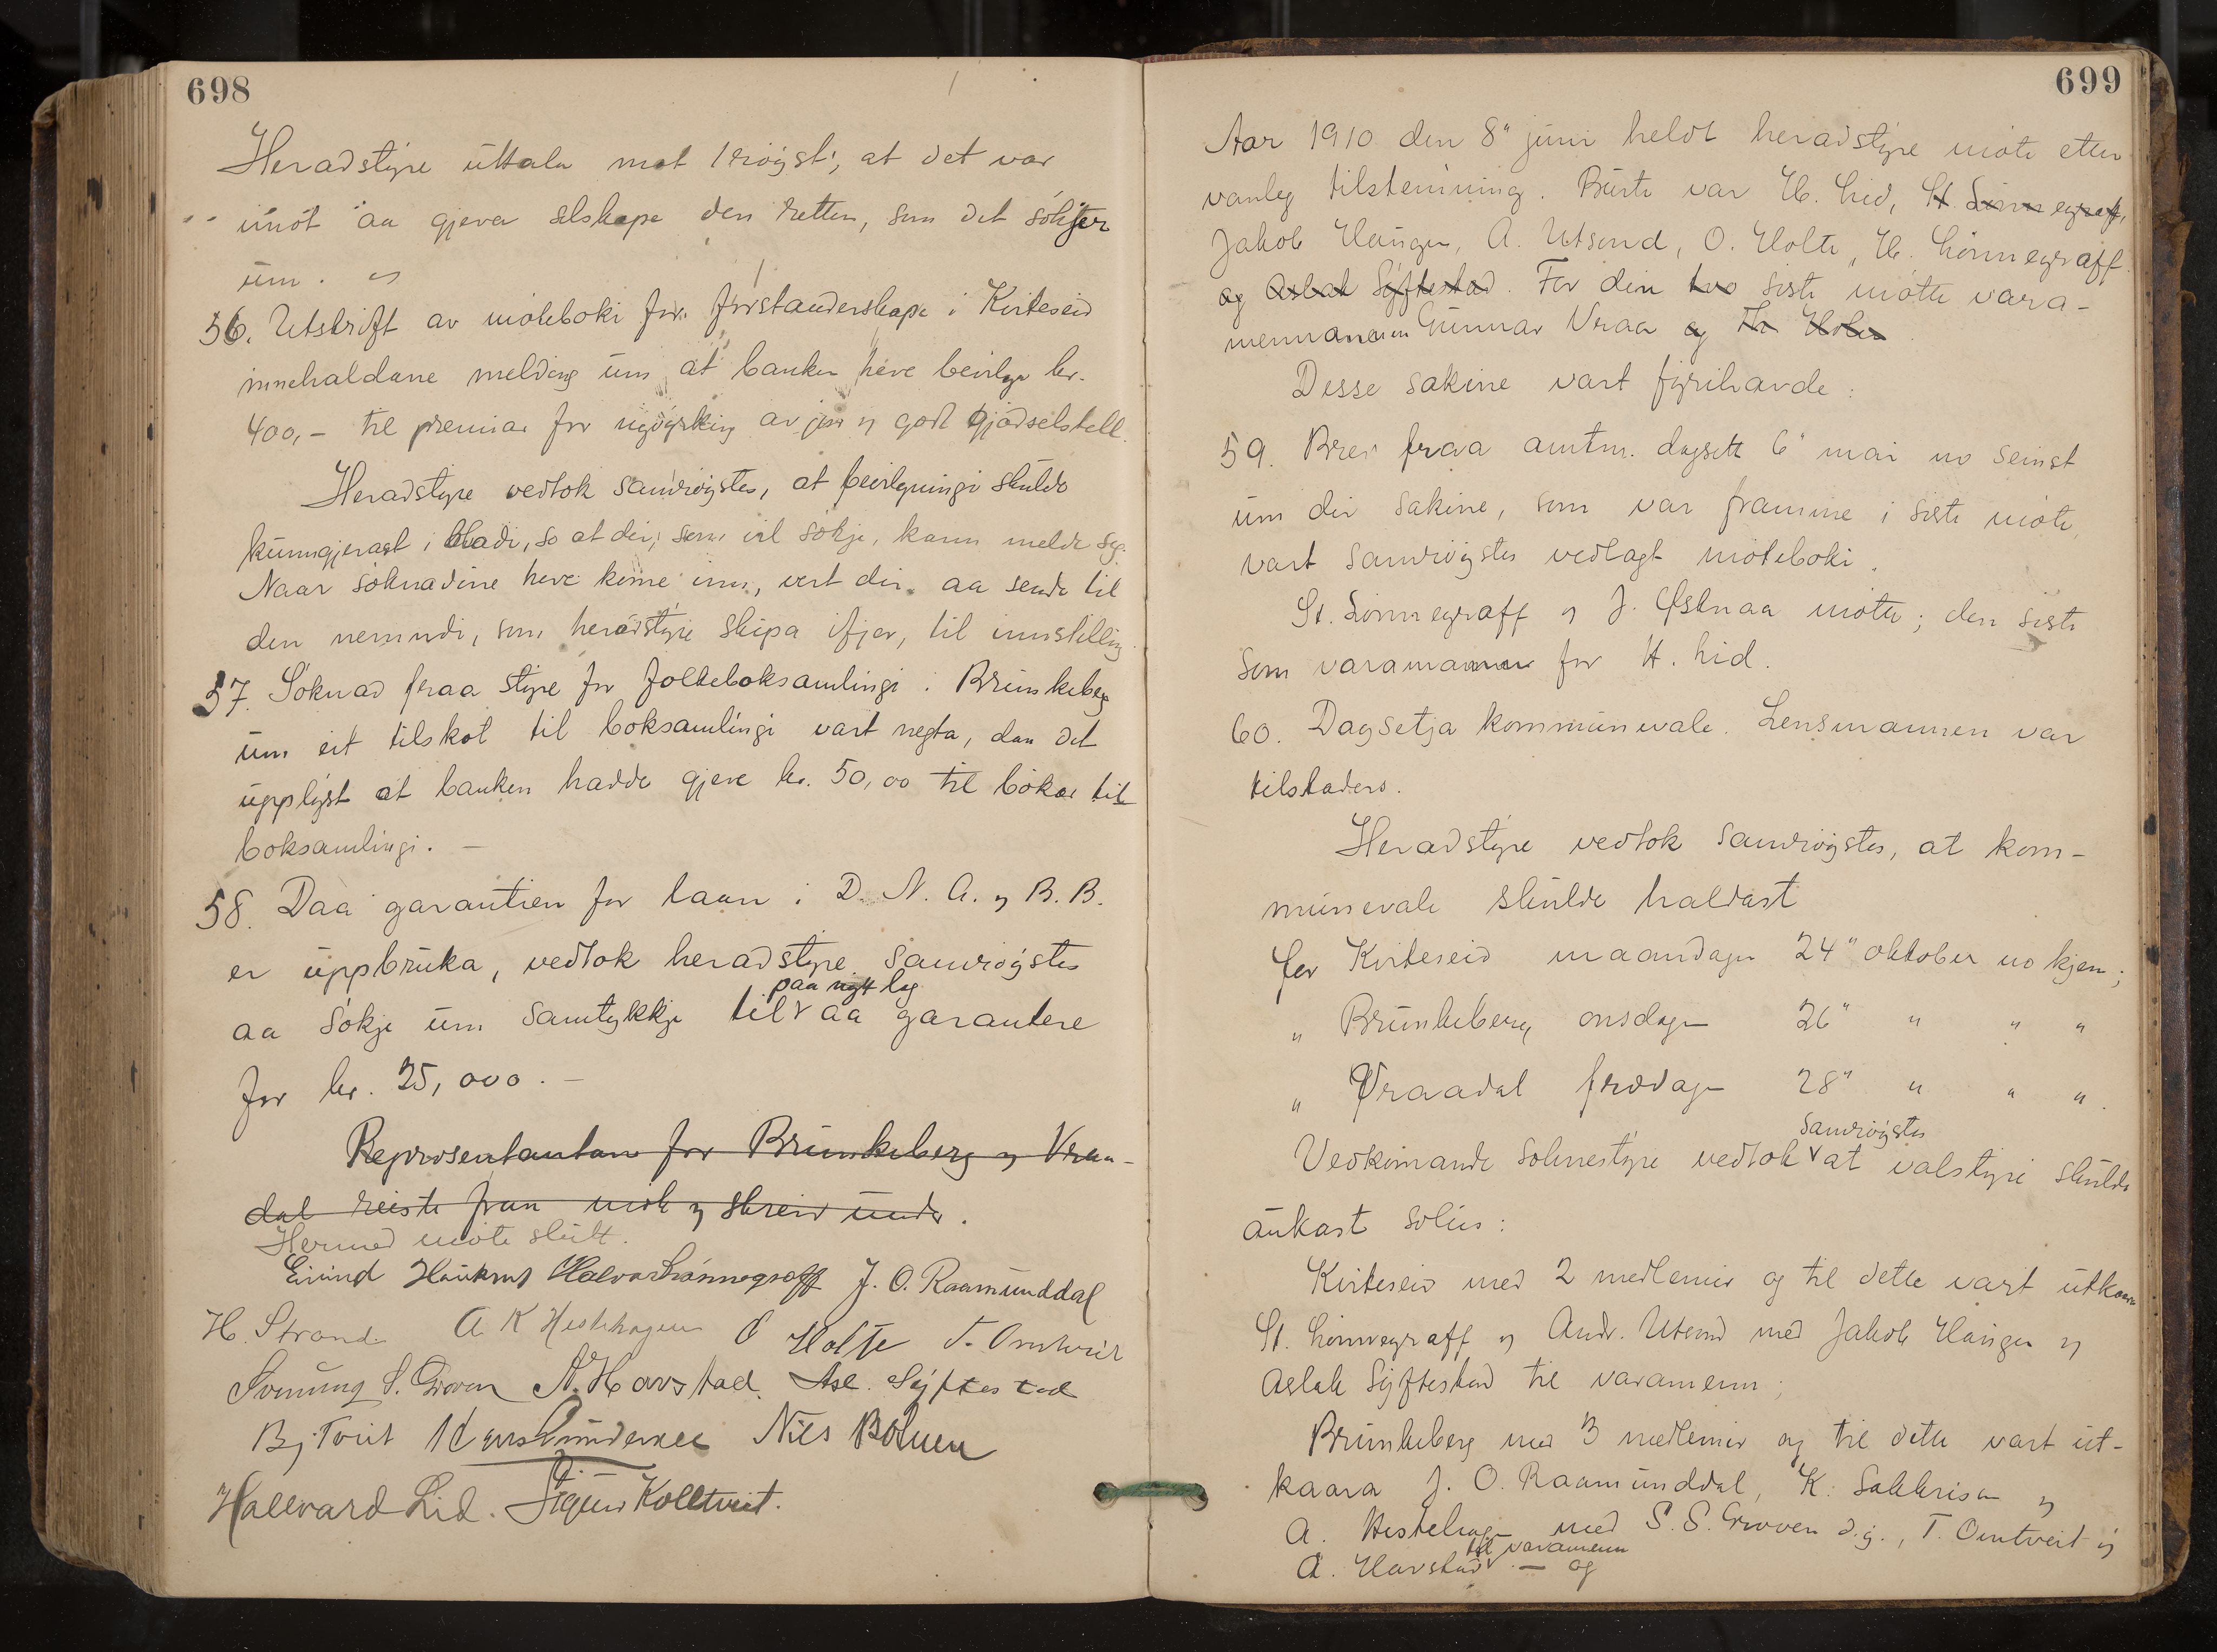 698
Heradstyre uttala mot 1 röyst, at det var
imot aa gjeva selskape den retten, som det sökjer
um.
56. Utskrift av möteboki for forstanderskape i Kviteseid
innehaldane melding um at banken heve bevilga kr.
400,- til premiar for nydyrking av jor og god gjödselstell.
Heradstyre vedtok samröystes, at bevilgningi skulde
kunngjerast i bladi, so at dei, som vil sökje, kann melde seg.
Naar söknadine heve kome inn, vert dei aa sende til
den nemndi, som heradstyre skipa ifjor, til innstilling.
57. Söknad fraa styre for folkeboksamlingi i Brunkeberg
um eit tilskot til boksamlingi vart negta, daa det
upplyst at banken hadde gjeve kr. 50,00 til böker til
boksamlingi. —
58. Daa garantien for laan i D. N. A. og B. B.
er uppbruka, vedtok heradstyre samröystes
paa nytt lag
aa sökje um samtykkje til aa garantere
for kr. 25,000. —
Representantane for Brunkeberg og Vraa-
dal reiste fraa möte og skreiv under.
Hermed möte slutt.
Eivind Haukrus Halvor Lönnegraff J. O. Raamunddal
H. Strand A K Hestehagen O Holte T. Omtveit
Svenung S. Groven N. Havstad. Asl. Syftestad
Bj. Tveit Nils Böluen
Hallvard Lid. Sigurd Kolltveit.
699
Aar 1910 den 8" juni heldt heradstyre möte etter
vanleg tilstemning. Burte var H. Lid, St. Lönnegraff,
Jakob Haugen, A. Utsund, O. Holte, H. Lönnegraff
og Aslak Syftestad. For dein tvo siste mötte vara-
mennanem Gunnar Vraa og
Desse sakine vart fyrihavde:
59. Brev fraa amtm. dagsett 6" mai no seinst
um dei sakine, som var framme i siste möte,
vart samröystes vedlagt möteboki.
St. Lönnegraff og J. Östnaa mötte; den siste
som varamann for H. Lid.
60. Dagsetja kommunevale. Lensmannen var
tilstaders.
Heradstyre vedtok samröystes, at kom-
munevale skulde haldast
for Kviteseid maandagen 24" oktober no kjem;
" Brunkeberg onsdagen 26" " " "
" Vraadal fredagen 28" " " ".
samröystes
Vedkomande soknestyre vedtok at valstyri skulde
aukast soleis:
Kviteseid med 2 medlemer og til dette vart utkaara
St. Lönnegraff og Andr. Utsund med Jakob Haugen og
Aslak Syftestad til varamenn;
Brunkeberg med 3 medlemer og til dette vart ut-
kaara J. O. Raamunddal, K. og
A. Hestehagen med S. S. Groven d.y., T. Omtveit og
til varamenn
A. Havstad — og